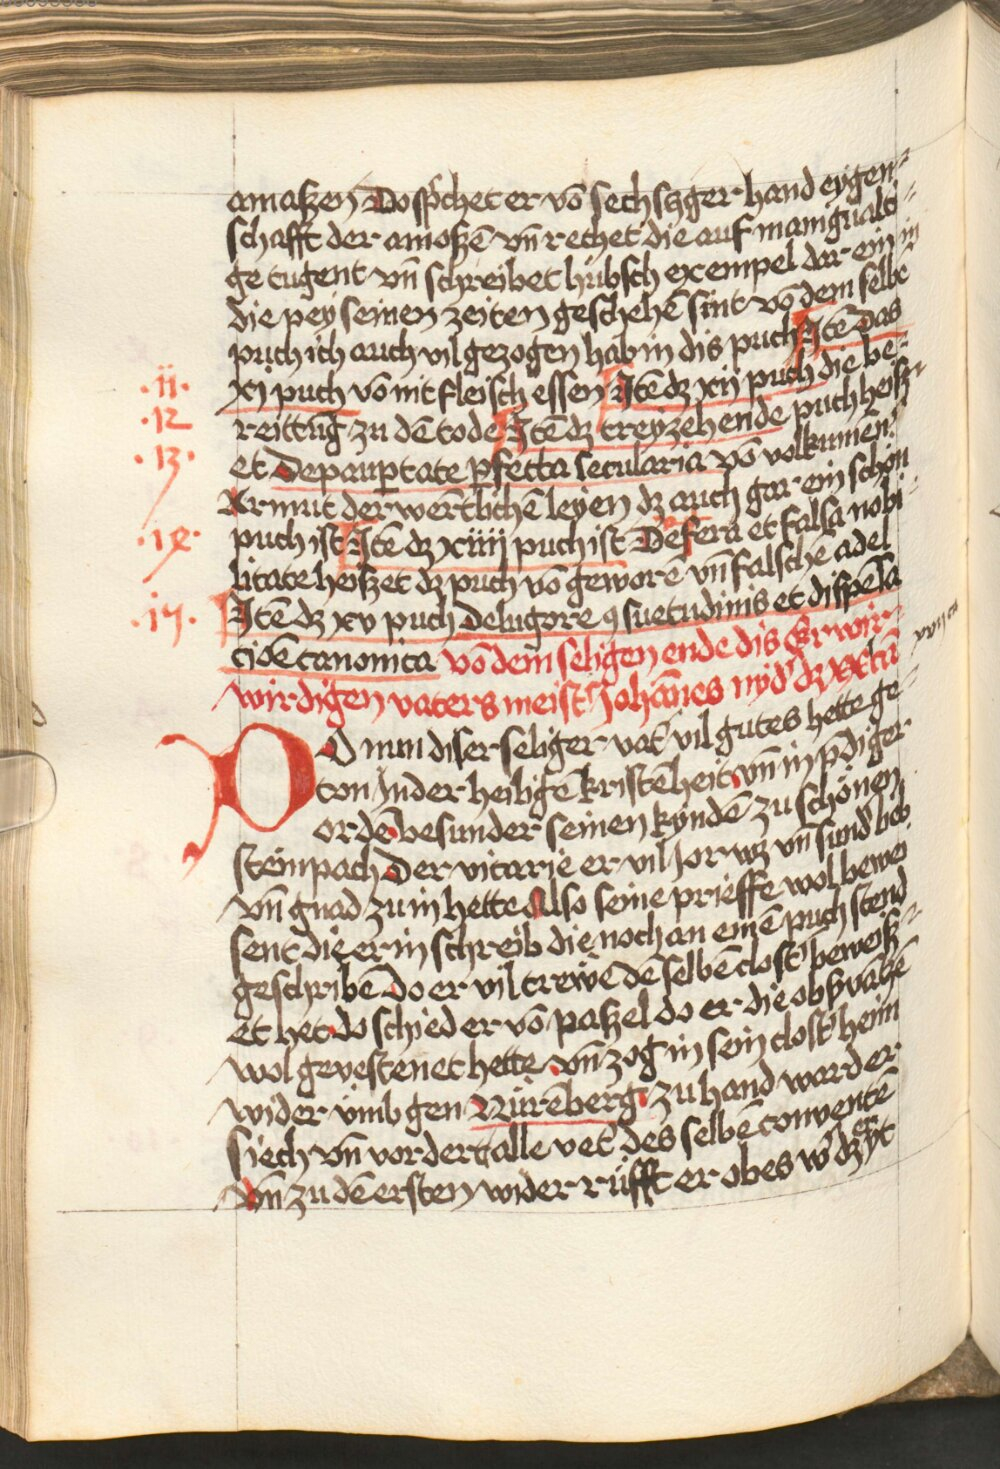 amaßen Do sp̄chet er vō sechszger hand eygen⸗
schafft der amoßē vn̄ rechet die auf manigualti⸗
ge tugent vn̄ schreibet hubsch exempel dar ein in
die pey seinen zeiten geschehē sint vō dem selbē
puch ich auch vil gezogen hab in dis puch Itē das
.11. xj puch vō nit fleisch essen Itē dz xij puch die be⸗
.12 reittūg zu dē tode Itē dz treyzehende puch heisz⸗
.13. et De paup̄tate p̄fecta secularia vō volkumen̄
Armut der werētlichē leyen dz auch gar ein schön
.14. puch ist Itē dz xiiij puch ist De fera et falsa nobi
litate heiszet dz puch vō geworē vn̄ falschē adel
.15. Itē dz xv puch De lugore ꝯsuetudinis et dispēsa
cioē canonica vō dem seligen ende dis Erwir⸗
wirdigen vaters meist̾ Johānes nyd̾ dz xxtū
xvij ca
Do nun diser seliger vat̾ vil gutes hette ge⸗
ton In der heiligē kristēheit vn̄ in p̄diger
ordē besunder seinen kyndē zu schönen
steinpach Der vicarie er vil Jor wz vn̄ sund̾ lieb
vn̄ gnad zu in hette Also seine prieffe wol bewei
sent die er in schreib die noch an einē puch stend
geschribē Do er vil trewe dē selbē clost̾ beweisz⸗
et het do schied er vō paszel do er die obs̾vāczē
wol gevestenet hette vn̄ zog in sein clost̾ heim
wider vmb gen Nürēberg zu hand ward er
siech vn̄ vordert alle vet̾ des selbē conventē
vn̄ zu dē ersten wider rüfft er ob es w̾ dz er yt